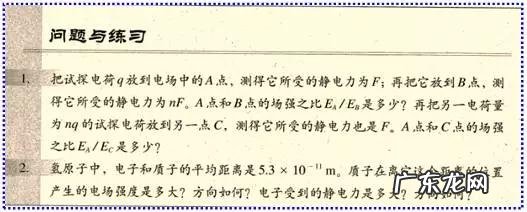 问题与练习
1. 把试探电荷q放到电场中的A点,测得它所受的静电力为F;再把它放到B点,测
得它所受的静电力为nF。A点和B点的场强之比E_A/E_B是多少?再把另一电荷量
为nq的试探电荷放到另一点C,测得它所受的静电力也是F。A点和C点的场强
之比E_A/E_C是多少?
2. 氢原子中,电子和质子的平均距离是5.3 × 10⁻¹¹ m。质子在离它这个距离的位置
产生的电场强度是多大?方向如何?电子受到的静电力是多大?方向如何?
广东龙网